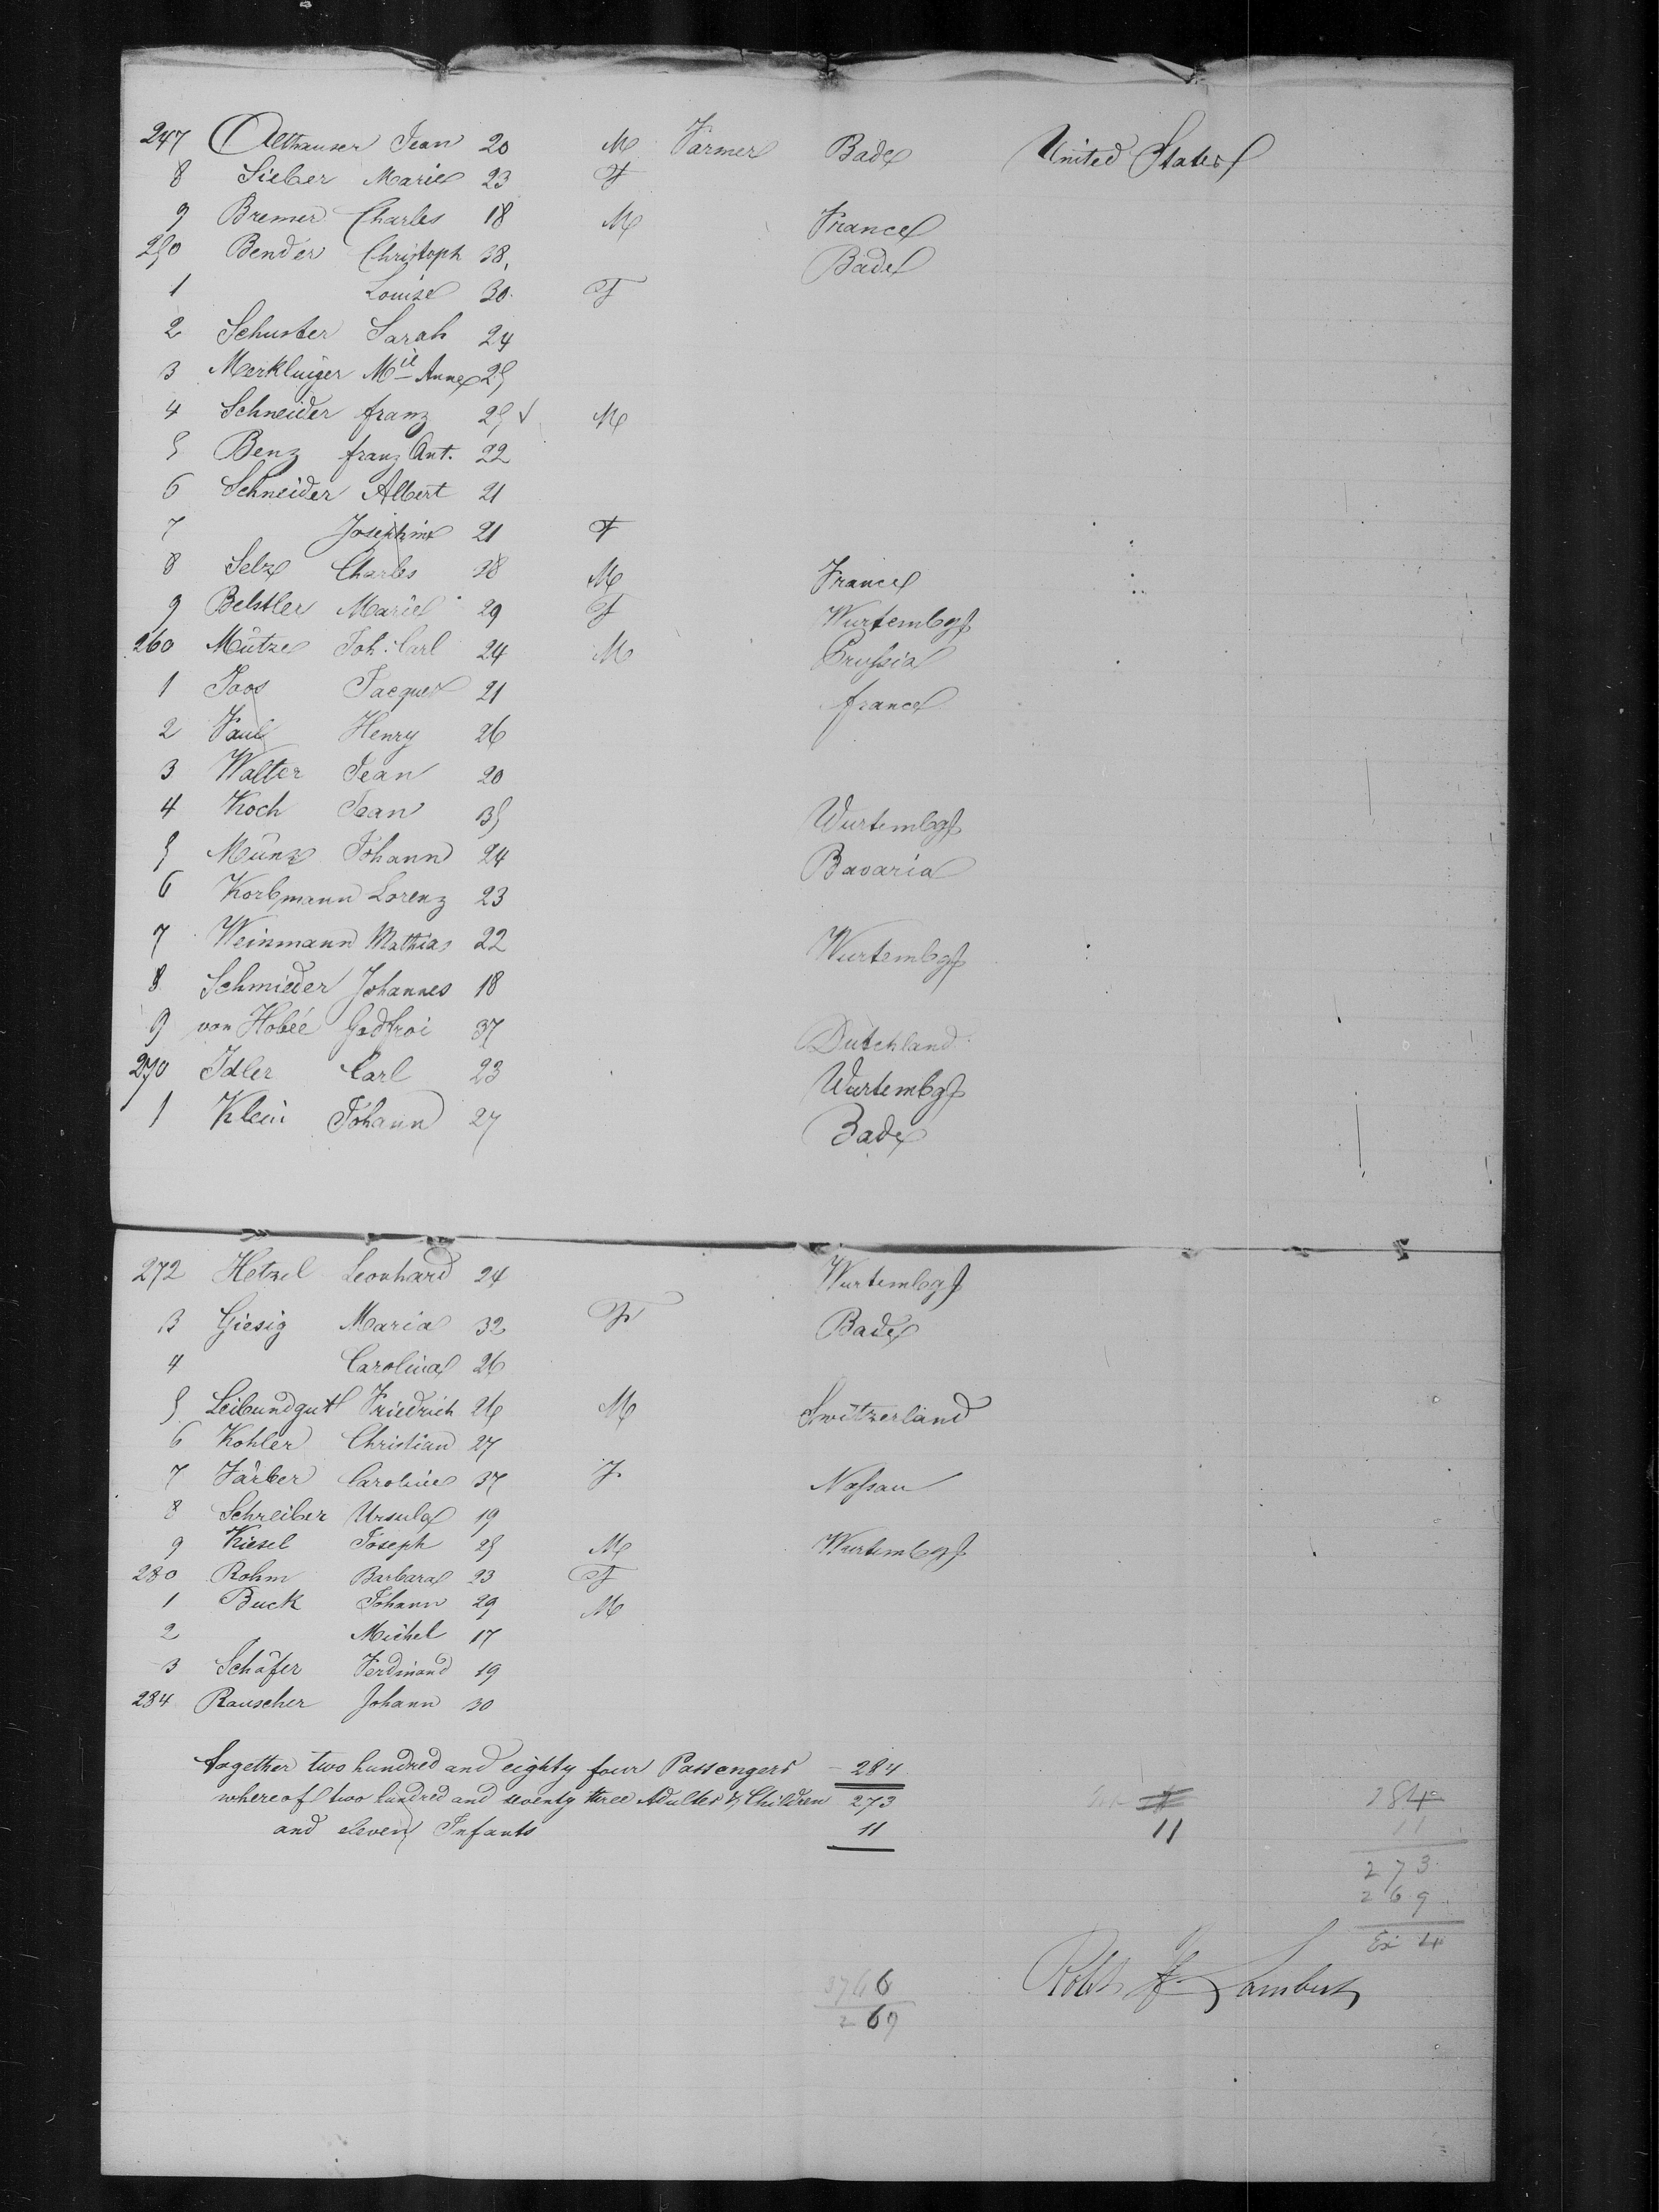 247 Althauser Jean 20 M Farmer Bade United States
8 Sieber Marie 23 F
9 Bremer Charles 18 M France
250 Bender Christoph 38 Bade
1 Louise 30 F
2 Schuster Sarah 24
3 Merklinger Mie Anne 25
4 Schneider franz 25 √ M
5 Benz franz Ant. 22
6 Schneider Albert 21
7 Josephine 21 F
8 Selz Charles 38 M France
9 Belstler Marie 29 F Wurtembg
260 Mütze Joh. Carl 24 M Prussia
1 Joos Jacques 21 france
2 Paul Henry 26
3 Walter Jean 20
4 Koch Jean 35 Wurtembg
5 Münz Johann 24 Bavaria
6 Korbmann Lorenz 23
7 Weinmann Mathias 22 Wurtembg
8 Schmieder Johannes 18
9 von Hobée Godfroi 37 Dutchland
270 Idler Carl 23 Wurtembg
1 Klein Johann 27 Bade
272 Hetzel Leonhard 24 Wurtembg
3 Giesig Maria 32 F Bade
4 Carolina 26
5 Leibundgutt Friedrich 26 M Switzerland
6 Kohler Christian 27
7 Färber Caroline 37 F Nassau
8 Schreiber Ursula 19
9 Kiesel Joseph 25 M Wurtembg
280 Rohm Barbara 23 F
1 Buck Johann 29 M
2 Michel 17
3 Schäfer Ferdinand 19
284 Rauscher Johann 30
together two hundred and eighty four Passengers 284
whereof two hundred and seventy three Adultes & Children 273 284
and eleven Infants 11 11 11
273
269
Ex 4
Robt F Lambert
269